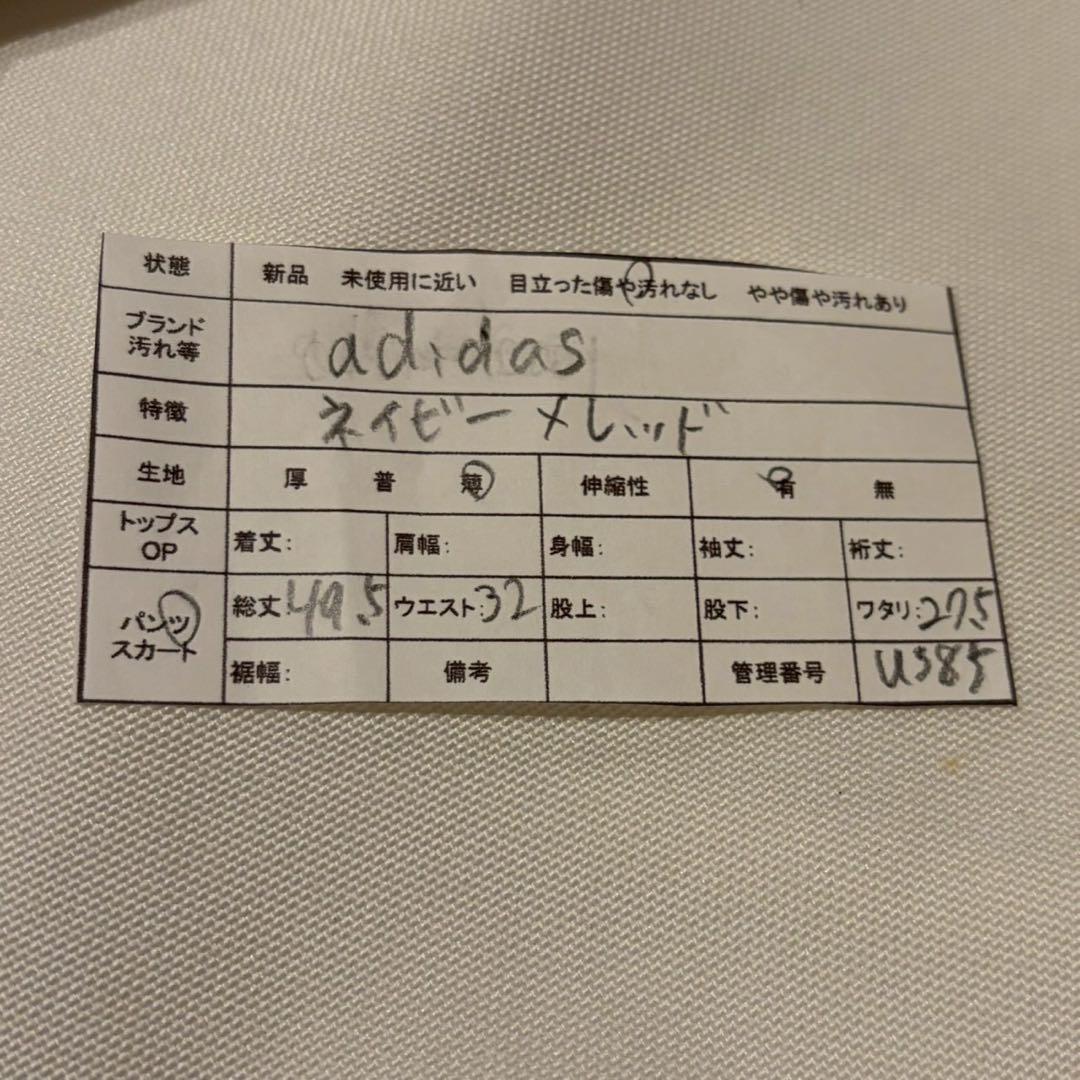 状態 新品 未使用に近い 目立った傷や汚れなし やや傷や汚れあり
ブランド
汚れ等 adidas
特徴 ネイビー×レッド
生地 厚 普 薄 伸縮性 有 無
トップス
OP 着丈: 肩幅: 身幅: 袖丈: 裄丈:
パンツ
スカート 総丈:49.5 ウエスト:32 股上: 股下: ワタリ:27.5
裾幅: 備考 管理番号 U385